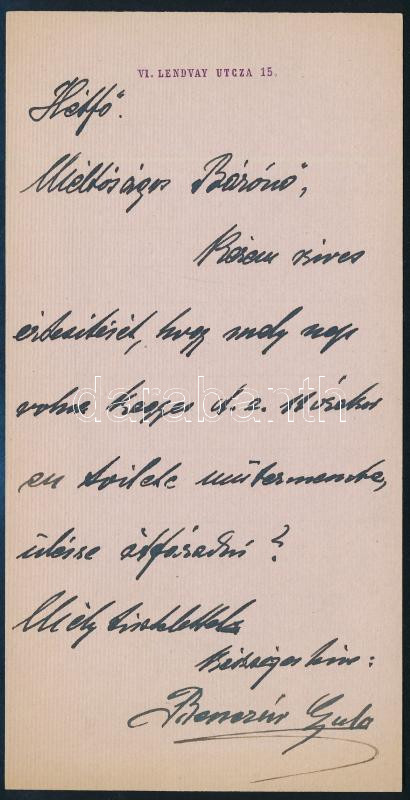 VI. LENDVAY UTCZA 15.
Hétfő.
Méltóságos Bárónő,
Kérem szives
értesítését, hogy mely nap
volna kegyes d. e. 11 órakor
en toilete műtermembe,
ülésre átfáradni?
Mély tisztelettel
készséges híve:
Benczúr Gyula
darabanth